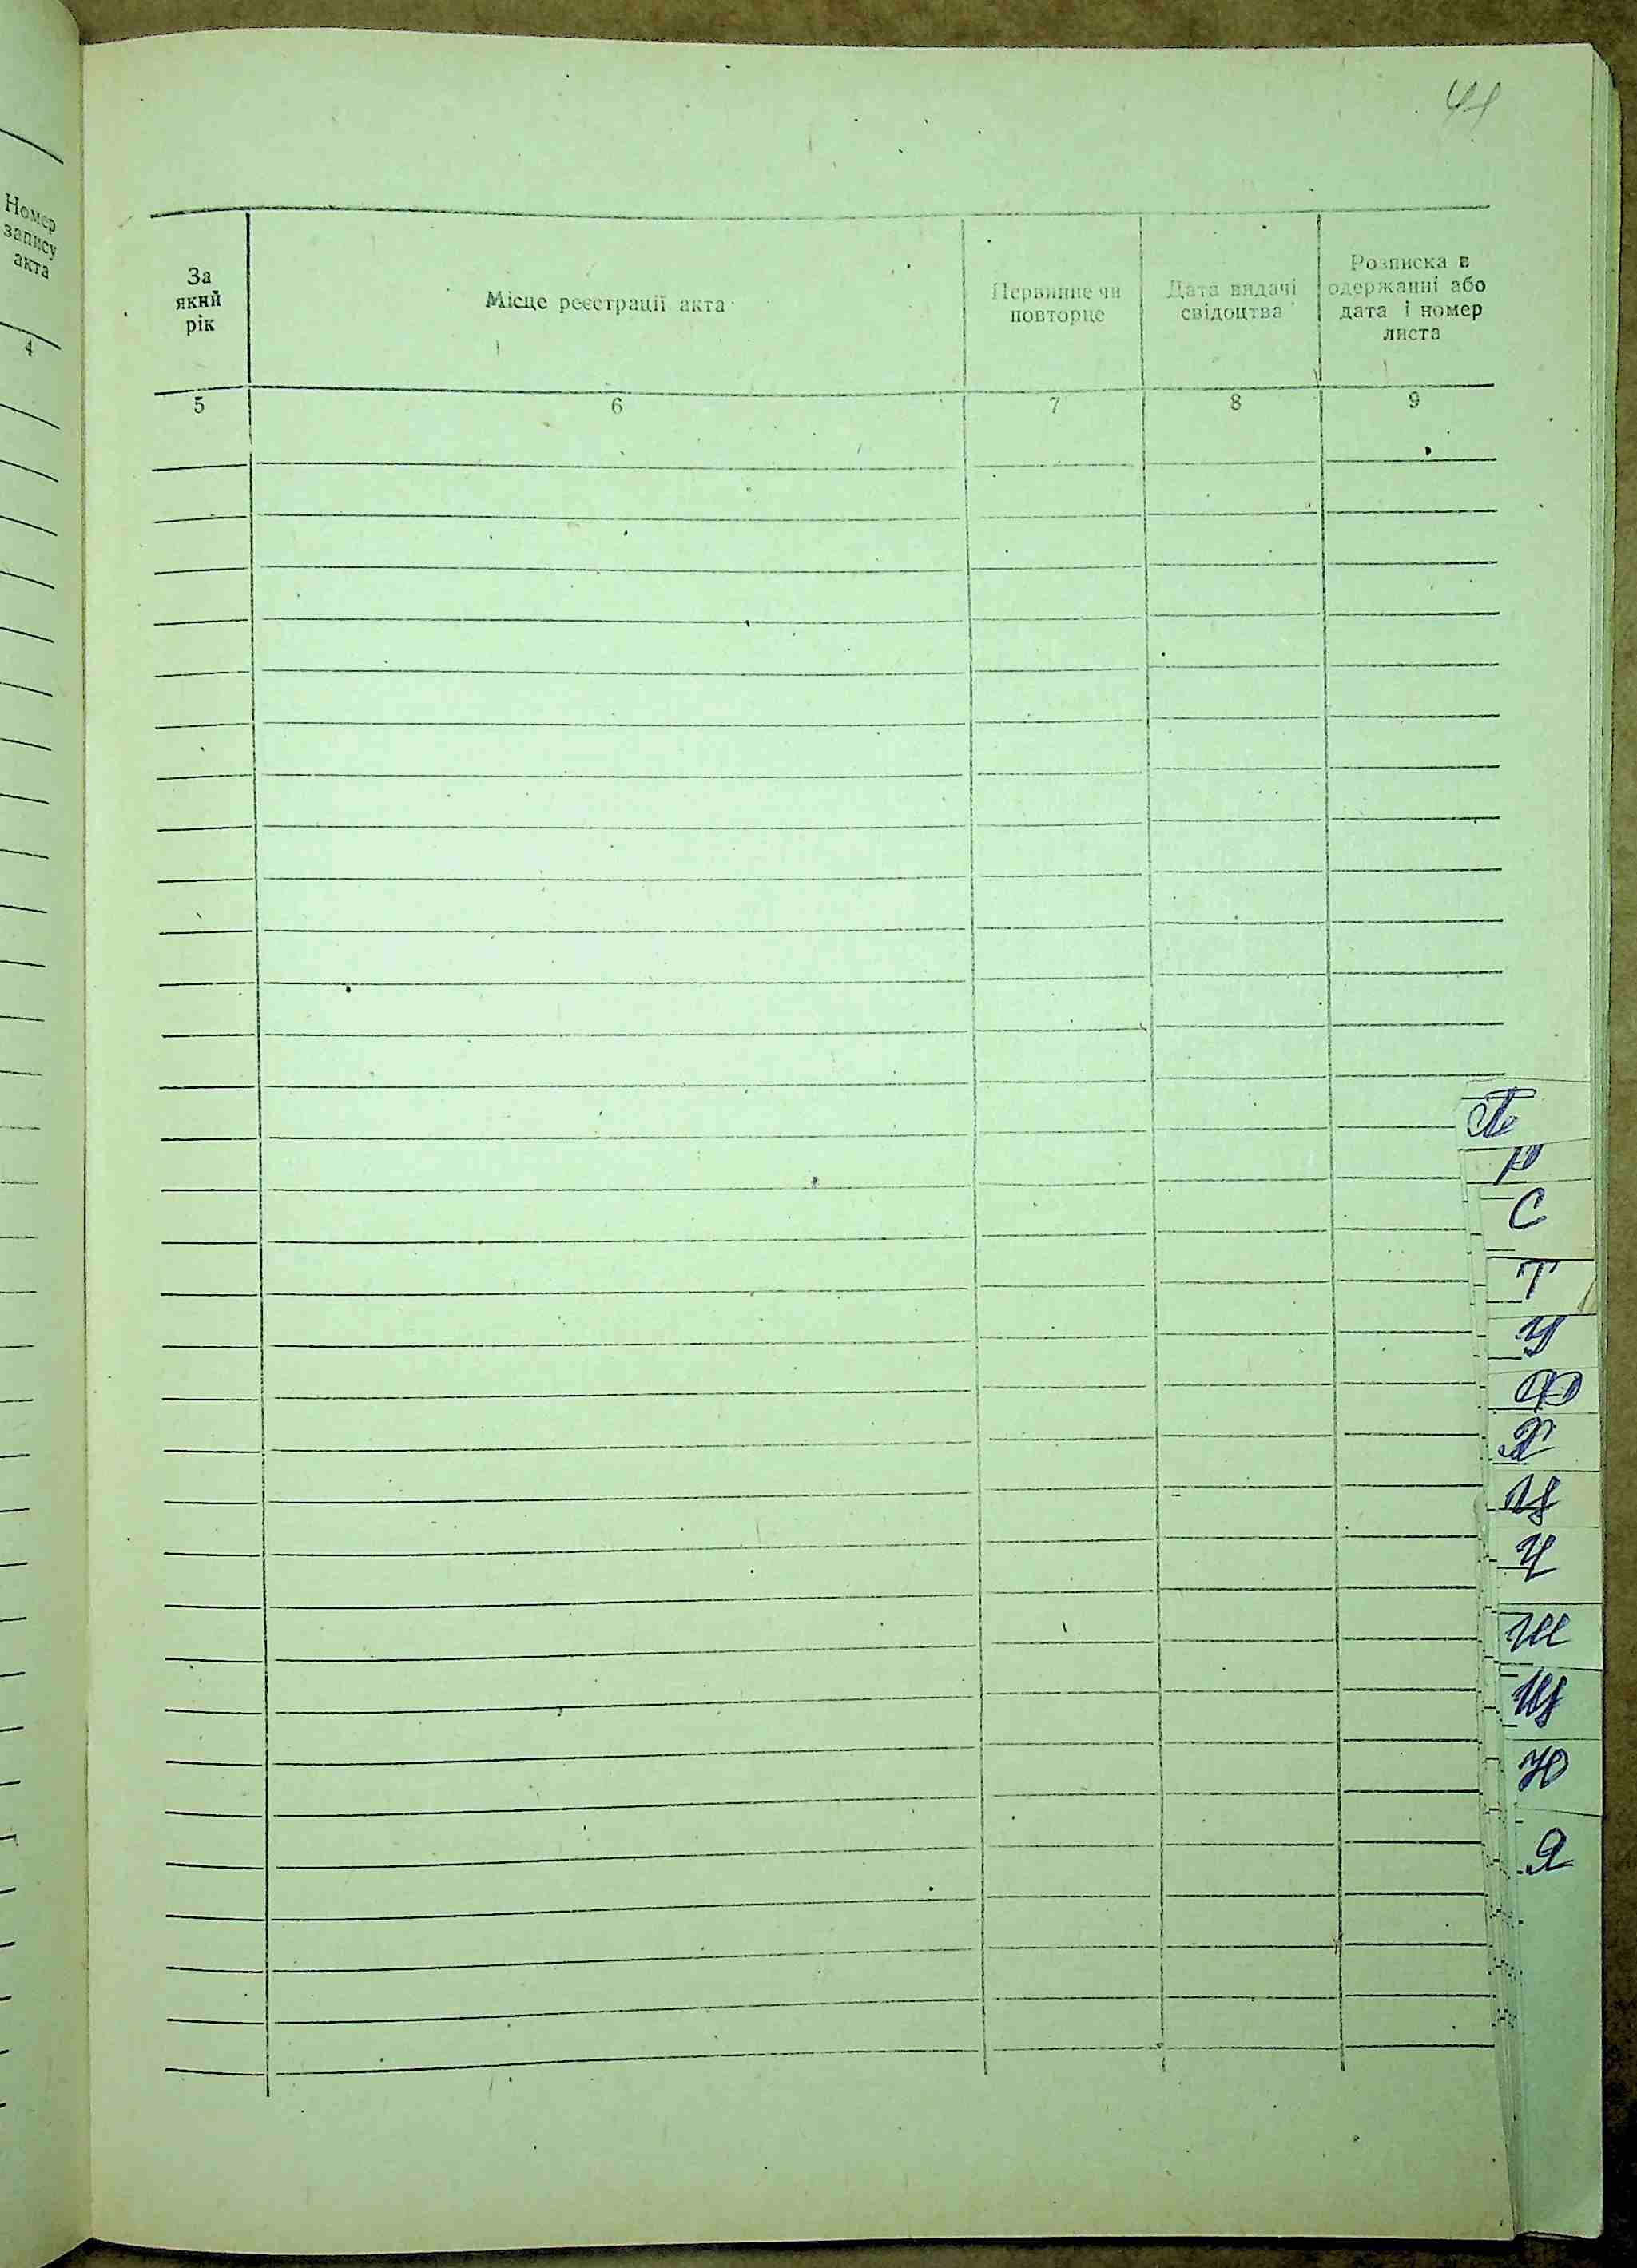 41
Номер
запису
акта
4
За
який
рік
Місце реєстрації акта
Первинне чи
повторне
Дата видачі
свідоцтва
Розписка в
одержанні або
дата і номер
листа
5
6
7
8
9
П
Р
С
Т
У
Ф
Х
Ц
Ч
Ш
Щ
Ю
Я